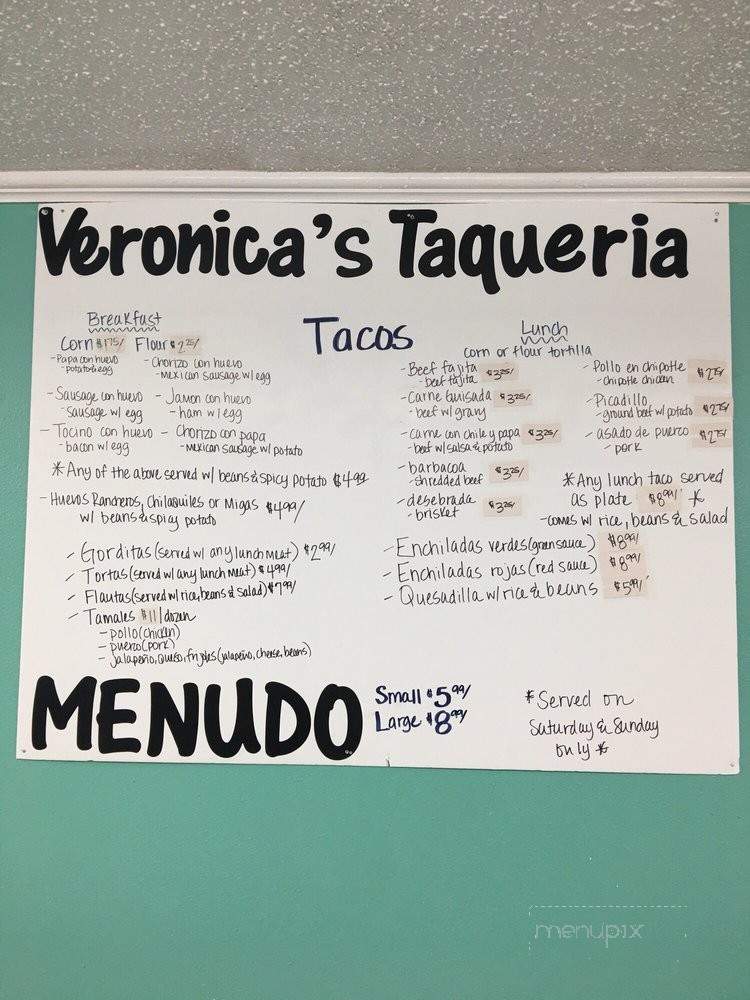 Veronica's Taqueria
Breakfast
Corn $1.75/ Flour $2.25/
- Papa con huevo
- potato & egg
- Chorizo con huevo
- mexican sausage w/ egg
- Sausage con huevo
- sausage w/ egg
- Jamon con huevo
- ham w/ egg
- Tocino con huevo
- bacon w/ egg
- Chorizo con papa
- mexican sausage w/ potato
* Any of the above served w/ beans & spicy potato $4.99
- Huevos Rancheros, Chilaquiles or Migas $4.99/
w/ beans & spicy potato
- Gorditas (served w/ any lunch meat) $2.99/
- Tortas (served w/ any lunch meat) $4.99/
- Flautas (served w/ rice, beans & salad) $7.99/
- Tamales $11/dozen
- pollo (chicken)
- puerco (pork)
- jalapeño, queso, frijoles (jalapeño, cheese, beans)
Tacos
Lunch
corn or flour tortilla
- Beef fajita $3.25/
- beef fajita
- Carne Guisada $3.25/
- beef w/ gravy
- carne con chile y papa $3.25/
- beef w/ salsa & potato
- barbacoa $3.25/
- shredded beef
- desebrada $3.25/
- brisket
- Pollo en chipotle $2.75/
- chipotle chicken
- Picadillo $2.75/
- ground beef w/ potato
- asado de puerco $2.75/
- pork
* Any lunch taco served
as plate $8.99/ *
- comes w/ rice, beans & salad
- Enchiladas verdes (green sauce) $8.99/
- Enchiladas rojas (red sauce) $8.99/
- Quesadilla w/ rice & beans $5.99/
MENUDO
Small $5.99/
Large $8.99/
* Served on
Saturday & Sunday
only *
menupix